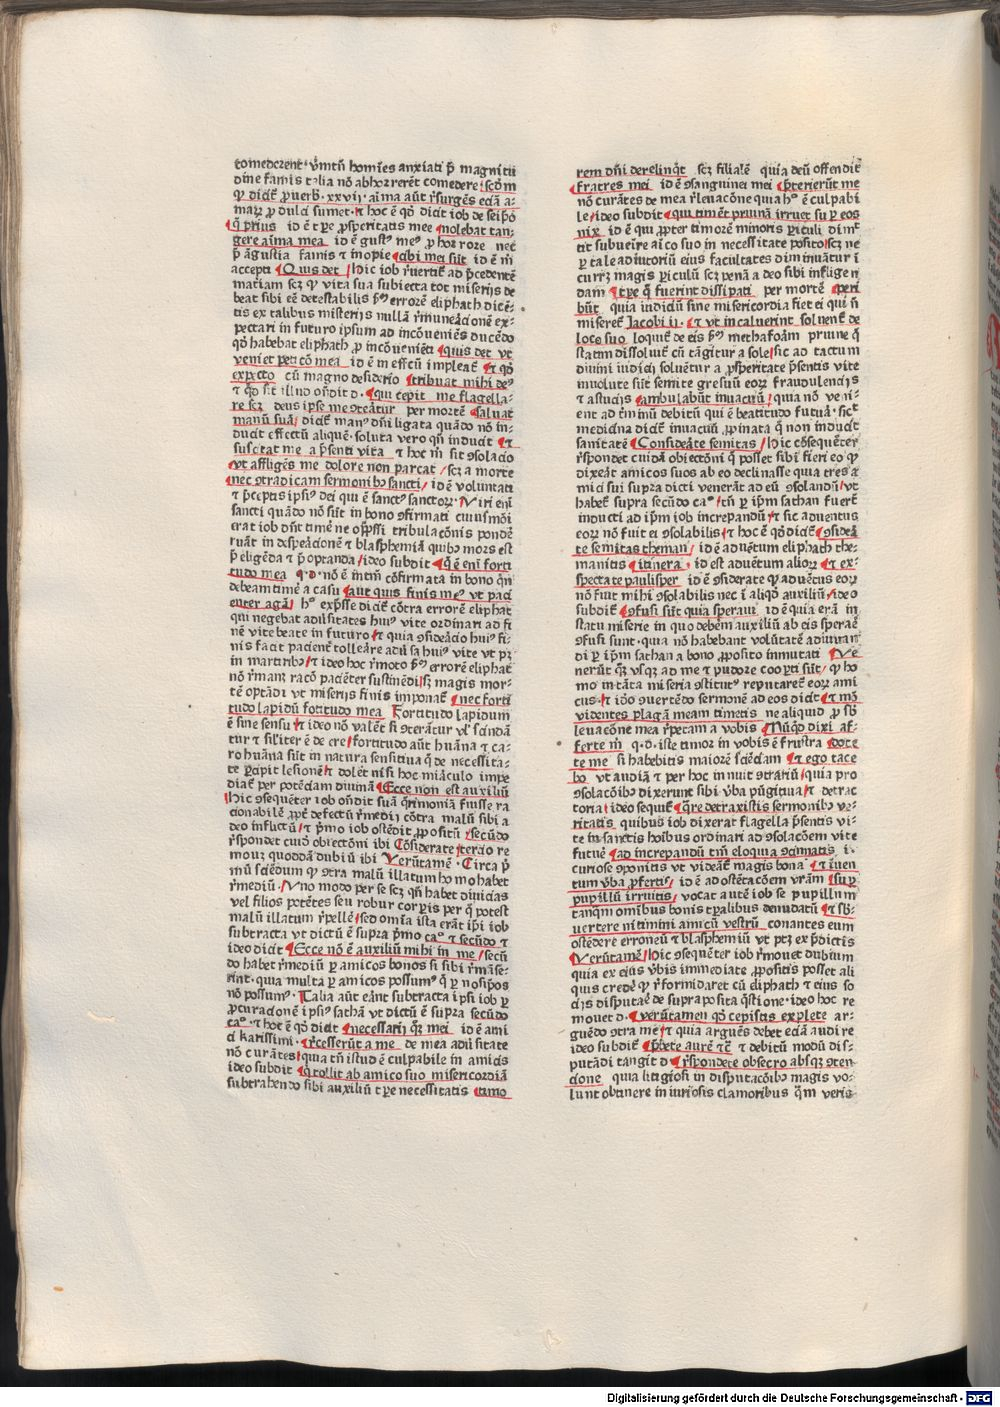 comederent· v̄mtñ homīes anxiati p̄ magnitu
dine famis talia nō abhorrerēt comedere scd̓m
ꝙ dicit̄ ꝓuerb̓· xxvij· aīma aūt r̓surgēs ecīā a-
marꝝ ꝓ dulci sumet· ⁊ hoc ē qd̓ dicit iob de seip̄o
q̄ prius id ē tꝑe ꝓsperitatis mee nolebat tan-
gere aīma mea id ē gustꝰ meꝰ ꝓ horrore nec
p̄ āgustia famis ⁊ inopie cibi mei sūt id ē m̄
accepti Quis det hic iob r̓uertit̄ ad p̄cedentē
mariam scꝫ ꝙ vita sua subiecta tot miserijs de
beat sibi eē detestabilis p̄ꝰ errorē eliphatꝫ dicē-
tis ex talibus miserijs nullā r̓munerācionē ex-
pectari in futuro ipsum ad incōueniēs ducēdo
qd̓ habebat eliphath ꝓ incōueniēti quis det vt
veniet peticō mea id ē in effcū impleat̄ ⁊ qd̓
expecto cū magno desiderio tribuat mihi deꝰ
⁊ qd̓ sit illud on̄dit d̓· qui cepit me flagella-
re scꝫ deus ipse me ꝯterātur per mortē saluat
manū suā dicit̄ manꝰ dn̄i ligata quādo nō in-
ducit effectū aliquē· soluta vero qn̄ inducit ⁊
succidat me a p̄senti vita ⁊ hoc m̄ sit ꝯsolacio
vt affligēs me dolore non parcat scꝫ a morte
nec ꝯtradicam sermonibꝰ sancti id ē voluntati
⁊ p̄ceptis ipsiꝰ dei qui ē sanctꝰ sanctorꝝ· Viri enī
sancti quādo nō sūt in bono ꝯfirmati cuiusmōi
erat iob dn̄t timē ne opp̄ssi tribulacōnis pondē
ruāt in desperācionē ⁊ blasphemiā quibꝰ mors est
p̄eligēda ⁊ p̄optanda ideo subdit q̄ ē enī forti
tudo mea q·d· nō ē intm̄ cōfirmata in bono qn̄
debeam timē a casu aut quis finis meꝰ vt paci
enter agā hᵒ exp̄sse dicit̄ cōtra errorē eliphatꝫ
qui negebat aduersitates huiꝰ vite ordinari ad fi
nē vite beate in futuro ⁊ quia ꝯsideācio huiꝰ fi-
nis facit pacient̄ tolleāre adu̓sa huiꝰ vite vt pꝫ
in martiribꝰ ⁊ ideo hoc r̓moto p̄ꝰ errorē eliphatꝫ
nō r̓manꝫ racō paciēter sustinēdi sꝫ magis mor-
tē optādi vt miserijs finis imponat̄ nec forti
tudo lapidū fortitudo mea Fortitudo lapidum
ē sine sensu ⁊ ideo nō valēt̄ si ꝯterātur vl̓ scindā
tur ⁊ sil̓iter ē de ere fortitudo aūt huāna ⁊ ca-
ro huāna sūt in natura sensitiua q̄ de necessita-
te ꝑcipit lesionē ⁊ dolēt nisi hoc miāculo impe
diat̄ per potēciam diuinā Ecce non est auxiliū
hic ꝯsequēter iob on̄dit suā q̄rimoniā fuisse ra
cionabilē ꝓpt̄ defectū r̓medij cōtra malū sibi a
deo inflictū ⁊ p̄mo iob ostēdit ꝓpositū secūdo
r̓spondet cuid̓ obiectōni ibi Cōsiderate tercio re
mouꝫ quoddā dubiū ibi Verūtamē· Circa p̄
mū sciēdum ꝙ ꝯtra malū illatum homo habet
r̓mediū· Vno modo per se scꝫ qn̄ habet diuicias
vel filios potētes seu robur corꝑis per q̄ potest
malū illatum r̓pellē sed omīa ista erāt ip̄i iob
subtracta vt dictū ē supra p̄mo caᵒ ⁊ secūdo ⁊
ideo dicit Ecce nō ē auxiliū mihi in me secū
do habet r̓mediū ꝑ amicos bonos si sibi r̓māse-
rint· quia multa ꝑ amicos possumꝰ q̄ ꝑ nosip̄os
nō possumꝰ· Talia aūt eānt subtracta ipsi iob ꝑ
ꝓcuracionē ipsiꝰ sathā vt dictū ē supra secūdo
caᵒ· ⁊ hoc ē qd̓ dicit necessarij qꝫ mei id ē ami
ci karissimi· r̓cesserūt a me de mea adu̓sitate
nō curātes quia tn̄ istud ē culpabile in amicis
ideo subdit q̄ tollit ab amico suo misericordiā
subtrahendo sibi auxiliū tꝑe necessitatis timo
rem dn̄i derelinq̄t scꝫ filialē quia deū offendit
Fratres mei id ē ꝯsanguinei mei p̄terierūt me
nō curātes de mea r̓leuacōne quia hᵒ ē culpabi
le ideo subdit qui timēt pruinā irruet suꝑ eos
nix id ē qui ꝓpter timorē minoris ꝑiculi dimt̄
tit subuenire aīco suo in necessitate posito scꝫ ne
ꝑ tale adiutoriū eius facultates diminuātur ī
currꝫ magis ꝑiculū scꝫ penā a deo sibi infligen
dam tꝑe q̄ fuerint dissipati per mortē peri
būt quia iudiciū sine misericordia fiet ei qui ñ
miseret̄ Jacobi ij· ⁊ vt incaluerint soluent̄ de
loco suo loquit̄ de eis p̄ꝰ methafoām pruine q̄
statim dissoluit̄ cū tāgitur a sole sic ad tactum
diuini iudicij soluētur a ꝓsperitate p̄sentis vite
inuolute sūt semite gresuū eorꝝ fraudulencijs
⁊ astucijs ambulabūt in vacuū quia nō veni-
ent ad r̓minū debitū qui ē beatitudo futuā· sicᵗ
medicina dicit̄ in vacuū ꝓpinata q̄ non inducit
sanitatē Consideāte semitas hic cōsequēter
r̓spondet cuidā obiectōni q̄ posset sibi fieri eo ꝙ
dixeāt amicos suos ab eo declinasse quia tres a
mici sui supra dicti venerāt ad eū ꝯsolandū vt
habet̄ supra secūdo caᵒ tn̄ ꝑ ip̄m sathan fuert̄
inducti ad ip̄m iob increpandū ⁊ sic aduentus
eorꝝ nō fuit ei ꝯsolabilis ⁊ hoc ē qd̓ dicit̄ ꝯsideā
te semitas theman id ē aduētum eliphath the-
manitis itinera id est aduētum aliorꝝ ⁊ ex-
spectate paulisper id ē ꝯsiderate ꝙ aduētus eorꝝ
nō fuit mihi ꝯsolabilis nec ī aliqᵒ auxiliū ideo
subdit̄ ꝯfusi sūt quia speraui id ē quia erā in
statu miserie in quo debēm auxiliū ab eis speraē
ꝯfusi sunt· quia nō habebant volūtatē adiuuan
di ꝑ ip̄m sathan a bono ꝓposito inmutati Ve
nerūt qꝫ vsqꝫ ad me ⁊ pudore cooꝑti sūt ꝙ ho
mo in tāta miseria ꝯstitutꝰ reputaret̄ eorꝝ ami
cus· ⁊ iōo ꝯuertēdo sermonē ad eos dicit ⁊ mō
videntes plagā meam timetis ne aliquid ꝓ sb̓
leuacōne mea r̓petam a vobis Nūqd̓ dixi af-
ferte m̄ q·d· iste timor in vobis ē frustra doce
te me si habebitis maiorē sciēciam ⁊ ego tace
bo vt audiā ⁊ per hoc innuit ꝯtrariū quia pro
ꝯsolacōibꝰ dixerunt sibi v̓ba pūgitiua ⁊ detrac
toria ideo sequit̄ q̄re detraxistis sermonibꝰ ve-
ritatis quibus iob dixerat flagella p̄sentis vi-
te in sanctis hoībus ordinari ad ꝯsolacōem vite
futuē ad increpandū tm̄ eloquia ꝯcinnatis i·
curiose ꝯponitis vt videāt̄ magis bona ⁊ ī ven
tum v̓ba ꝓfertis id ē ad ostētacōem vrām suꝑ
pupillū irruitis vocat autē iob se pupillum
tanq̄m omībus bonis tꝑalibus denudatū ⁊ sb̓-
uertere nitimini amicū vestrū conantes eum
ostēdere erroneū ⁊ blasphemiū vt ptꝫ ex p̄dictis
Verūtamē hic ꝯsequēter iob r̓mouet dubium
quia ex eius v̓bis immediate ꝓpositis posset ali
quis credē ꝙ r̓formidaret cū eliphath ⁊ eius so
cijs disputaē de supraposita q̄stione· ideo hoc re
mouet d̓· verūtamen qd̓ cepistis explete ar-
guēdo ꝯtra me ⁊ quia arguēs debet ecīā audire
ideo subdit̄ p̄bete aurē ⁊c̄ ⁊ debitū modū dis-
putādi tangit d̓ r̓spondete obsecro absqꝫ ꝯten-
cione quia litigiosi in disputacōibꝰ magis vo-
lunt obtinere iniuriosis clamoribus q̄m veris
Digitalisierung gefördert durch die Deutsche Forschungsgemeinschaft - DFG